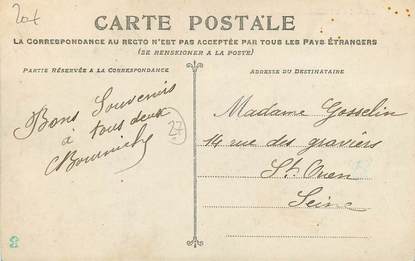 20f
CARTE POSTALE
LA CORRESPONDANCE AU RECTO N'EST PAS ACCEPTÉE PAR TOUS LES PAYS ÉTRANGERS
(SE RENSEIGNER A LA POSTE)
PARTIE RÉSERVÉE A LA CORRESPONDANCE
ADRESSE DU DESTINATAIRE
Bons Souvenirs
à tous deux
27
Madame Gosselin
14 rue des graviers
St. Ouen
Seine